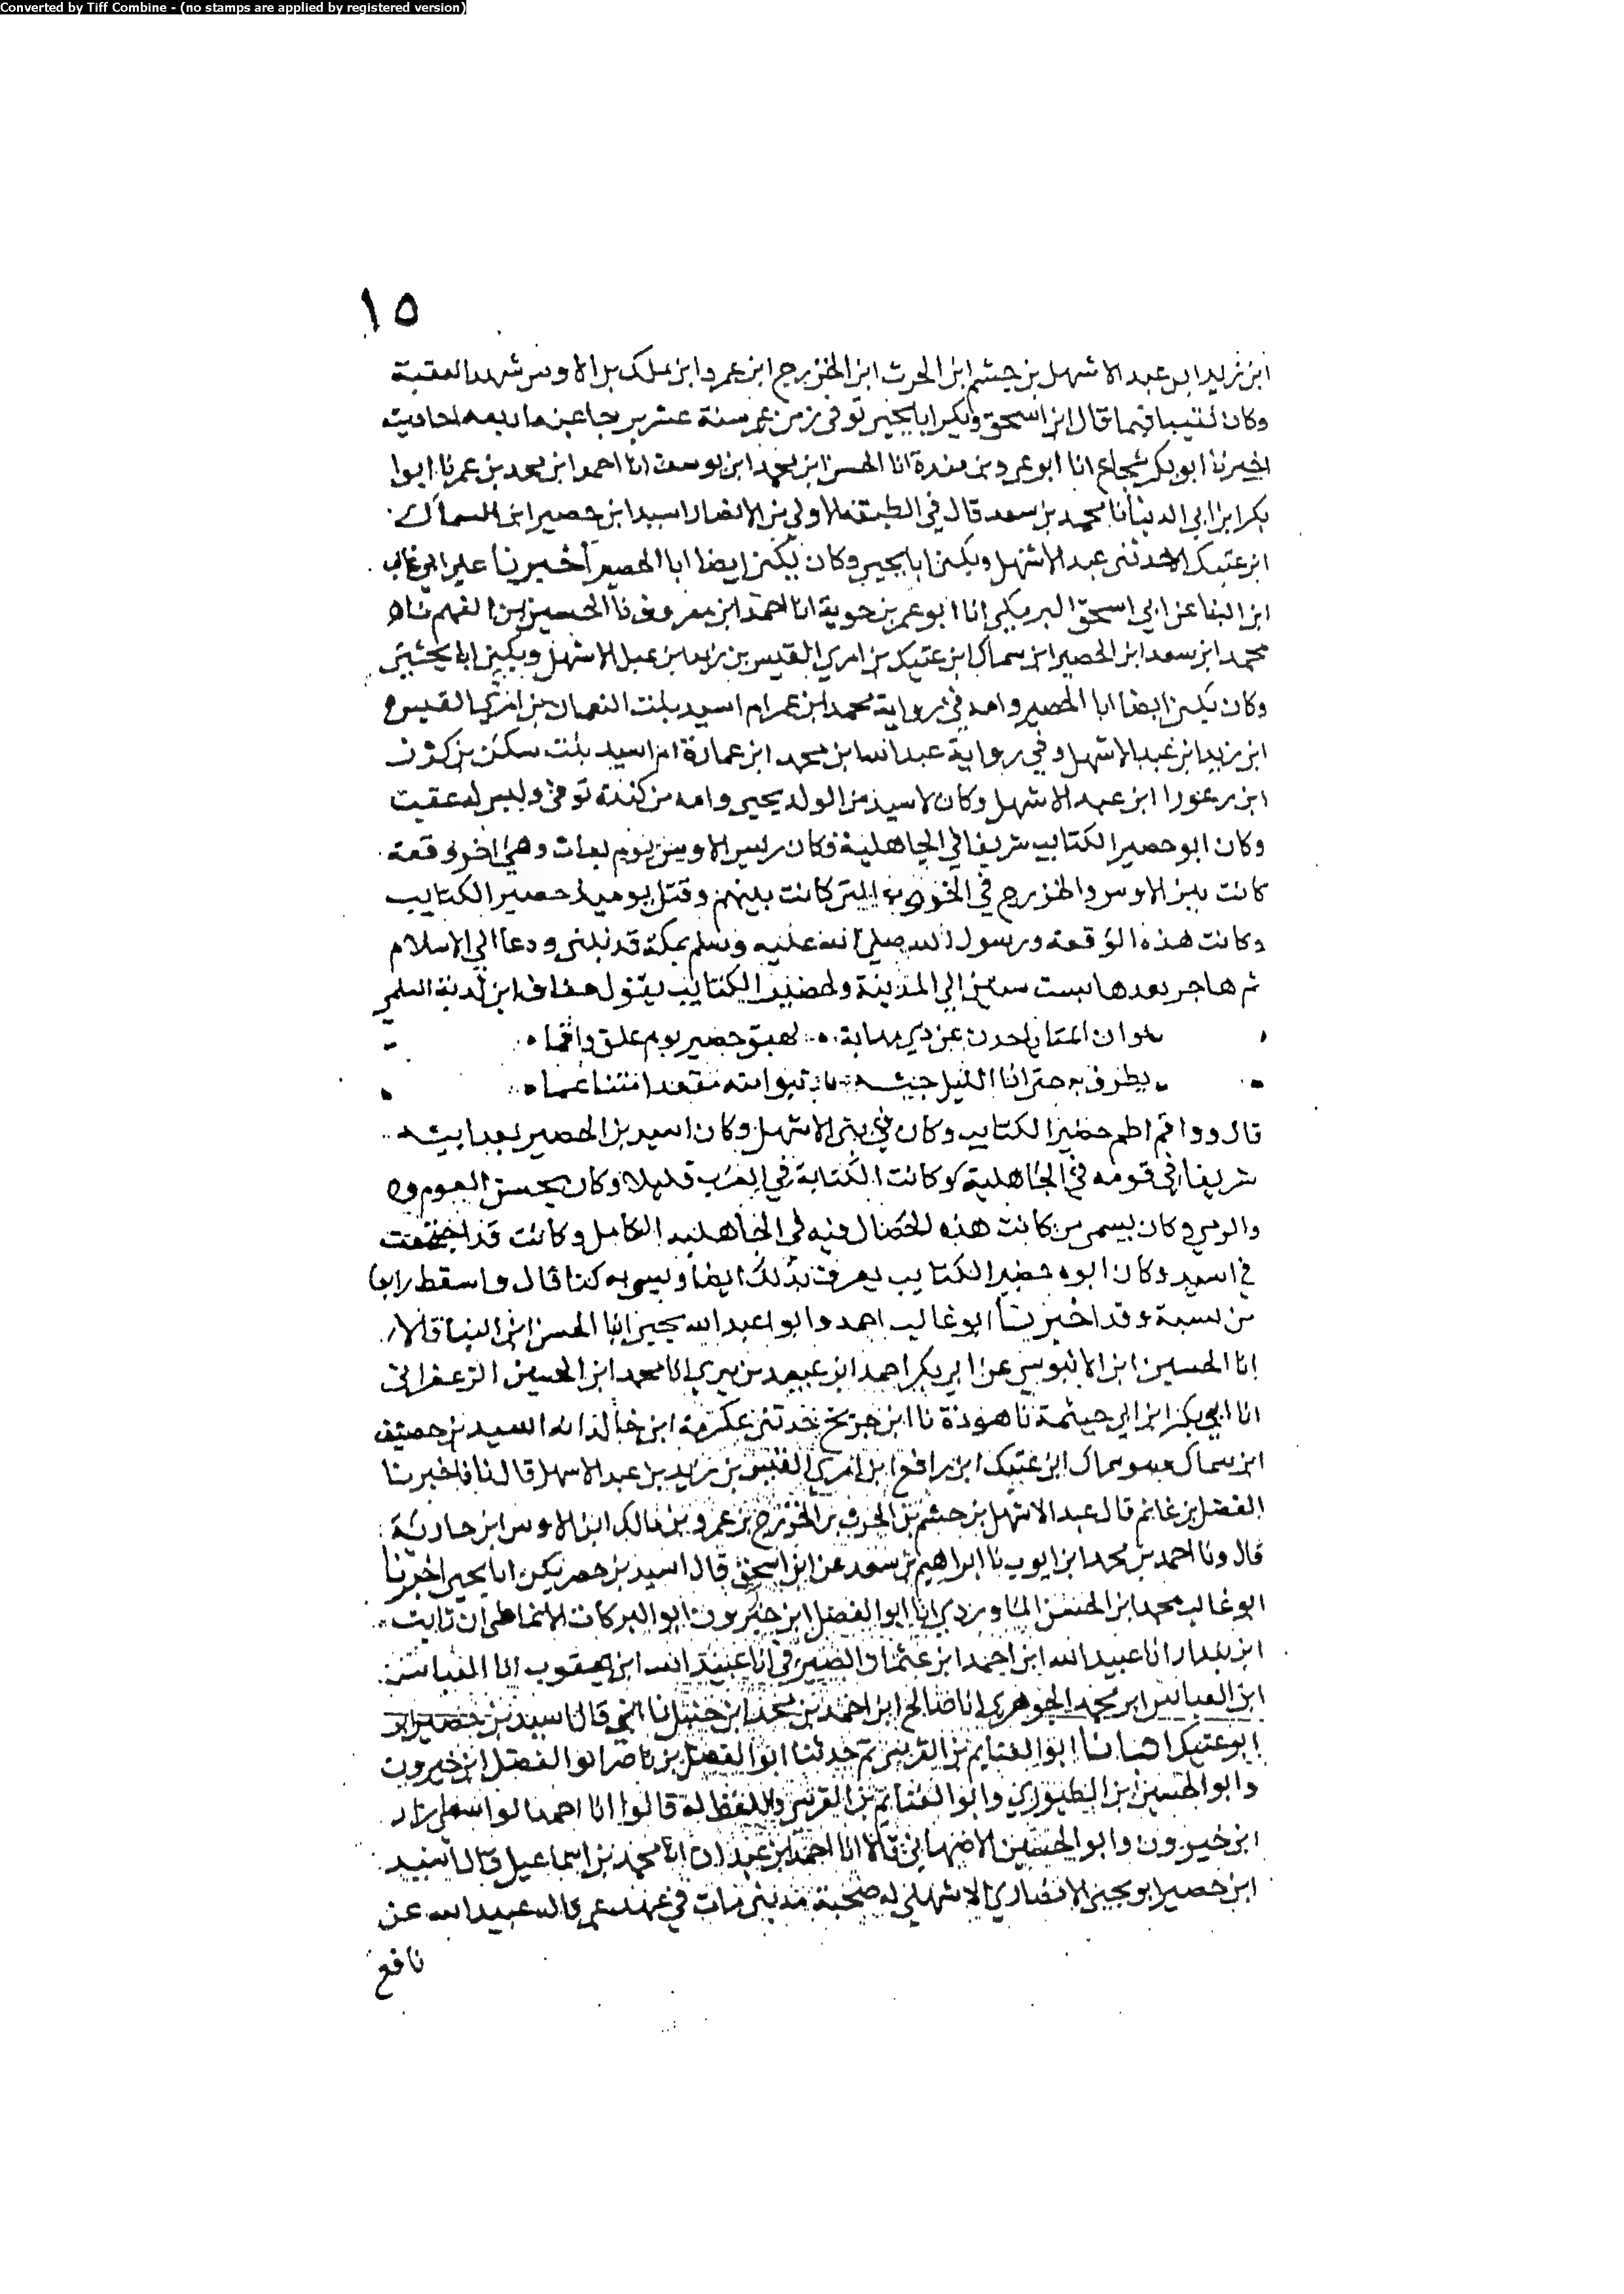 Converted by Tiff Combine - (no stamps are applied by registered version)
١٥
ابن زيد ابن عبد الاشهل بن جشم ابن الحرث ابن الخزرج ابن عمرو ابن ملك بن الاوس شهد العقبة
وكان نقيبا فيما قال ابن اسحق ويكنى ابا يحيى توفي زمن عمر سنة عشرين جا عن ما ربعه احاديث
اخبرنا ابو بكر شجاع انا ابو عمرو بن مندة انا الحسن ابن محمد ابن يوسف انا احمد ابن محمد بن عمر نا ابوا
بكر ابن ابي الدنيا نا محمد بن سعد قال في الطبقة الاولى من الانصار اسيد ابن حصير ابن السماك
ابن عتيك الاحدثنى عبد الاشهل ويكنى ابا يحيى وكان يكنى ايضا ابا الحصير أخبرنا على ابي غالب
ابن البنا عن ابي اسحق البرمكي انا ابو عمر بن حوية انا احمد ابن معروف نا الحسين بن الفهم نا
محمد ابن سعد ابن الحصير ابن سماك ابن عتيك بن امري القيس بن زيد ابن عبد الاشهل ويكنى ابا يحيى
وكان يكنى ايضا ابا الحصير وامه في رواية محمد ابن عمر ام اسيد بنت النعمان بن امري القيس
ابن زيد ابن عبد الاشهل وفي رواية عبد الله ابن محمد ابن عمارة ام اسيد بنت سكن بن كرز
ابن زعورا ابن عبد الاشهل وكان لاسيد من الولد يحيى وامه من كندة توفي وليس له عقب
وكان ابو حصير الكتايب شريفا في الجاهلية وكان ريس الاوس يوم بعاث وهي اخر وقعة
كانت بين الاوس والخزرج في الحروب التى كانت بينهم وقتل يوميذ حصير الكتايب
وكانت هذه الوقعة ورسول الله صلى الله عليه وسلم بمكة قد نبى ودعا الي الاسلام
ثم هاجر بعدها بست سنين الي المدينة ولحضير الكتايب يقول خفاف ابن ندبة السلمي
لو ان المنايا حدن عن ذي مهابة لهبن حصير يوم علق واقما
يطوف به حتى اذا الليل جنه تبوا منه مقعدا متناعما
قال وواقم اطم حضير الكتايب وكان في بني الاشهل وكان اسيد بن الحصير بعد ابيه
شريفا في قومه في الجاهلية وكانت الكتابة في العرب قليلا وكان يحسن العوم
والرمي وكان يسمى من كانت هذه الخصال فيه في الجاهلية الكامل وكانت قد اجتمعت
في اسيد وكان ابوه حضير الكتايب يعرف بذلك ايضا ويسمى به كذا قال واسقط رافعا
من نسبة وقد اخبرنا ابو غالب احمد وابو اعبد الله يحيى ابنا الحسن ابن البنا قالا
انا الحسين ابن الابنوسي عن ابي بكر احمد ابن عبيد بن بيري انا محمد ابن الحسين الزعفراني
انا ابي بكر ابن ابي حيثمة نا هوذة نا ابن جريج حدثنى عكرمة ابن خالد انه اسيد بن حصير
ابن سماك ابن عتيك ابن رافع ابن امري القيس بن زيد بن عبد الاسهل قال نا اخبرنا
الفضل بن غانم قال عبد الاشهل بن جشم بن الحرث بن الخزرج بن عمرو بن مالك ابن الاوس ابن حارثة
قال ونا احمد بن محمد ابن ايوب نا ابراهيم بن سعد عن ابن اسحق قال اسيد بن حصير يكنى ابا يحيى اخبرنا
ابو غالب محمد ابن الحسن الماوردي انا ابوا الفضل ابن خيرون ابو البركات الانماطي ان ثابت
ابن بندار انا عبيد الله ابن احمد ابن عثمان الصيرفي انا عبيد الله ابن يعقوب انا العباس
ابن العباس ابن محمد الجوهري انا صالح ابن احمد بن محمد ابن حنبل نا ابي قال اسيد بن حصير ابو
ابو عتيك انبانا ابوا الغنايم بن القرسى ثم حدثنا ابوا الفضل بن ناصر ابوا الفضل ابن خيرون
وابو الحسين بن الطيوري وابوا الغنايم بن القرسى واللفظ له قالوا انا احمد زاد
ابن خيرون وابو الحسين الاصبهاني قالا انا احمد ابن عبدان انا محمد بن اسماعيل قال اسيد
ابن حصير ابو يحيى الانصاري الاشهلي له صحبة مدينى مات في عهد عمر قاله عبيد الله عن
نافع